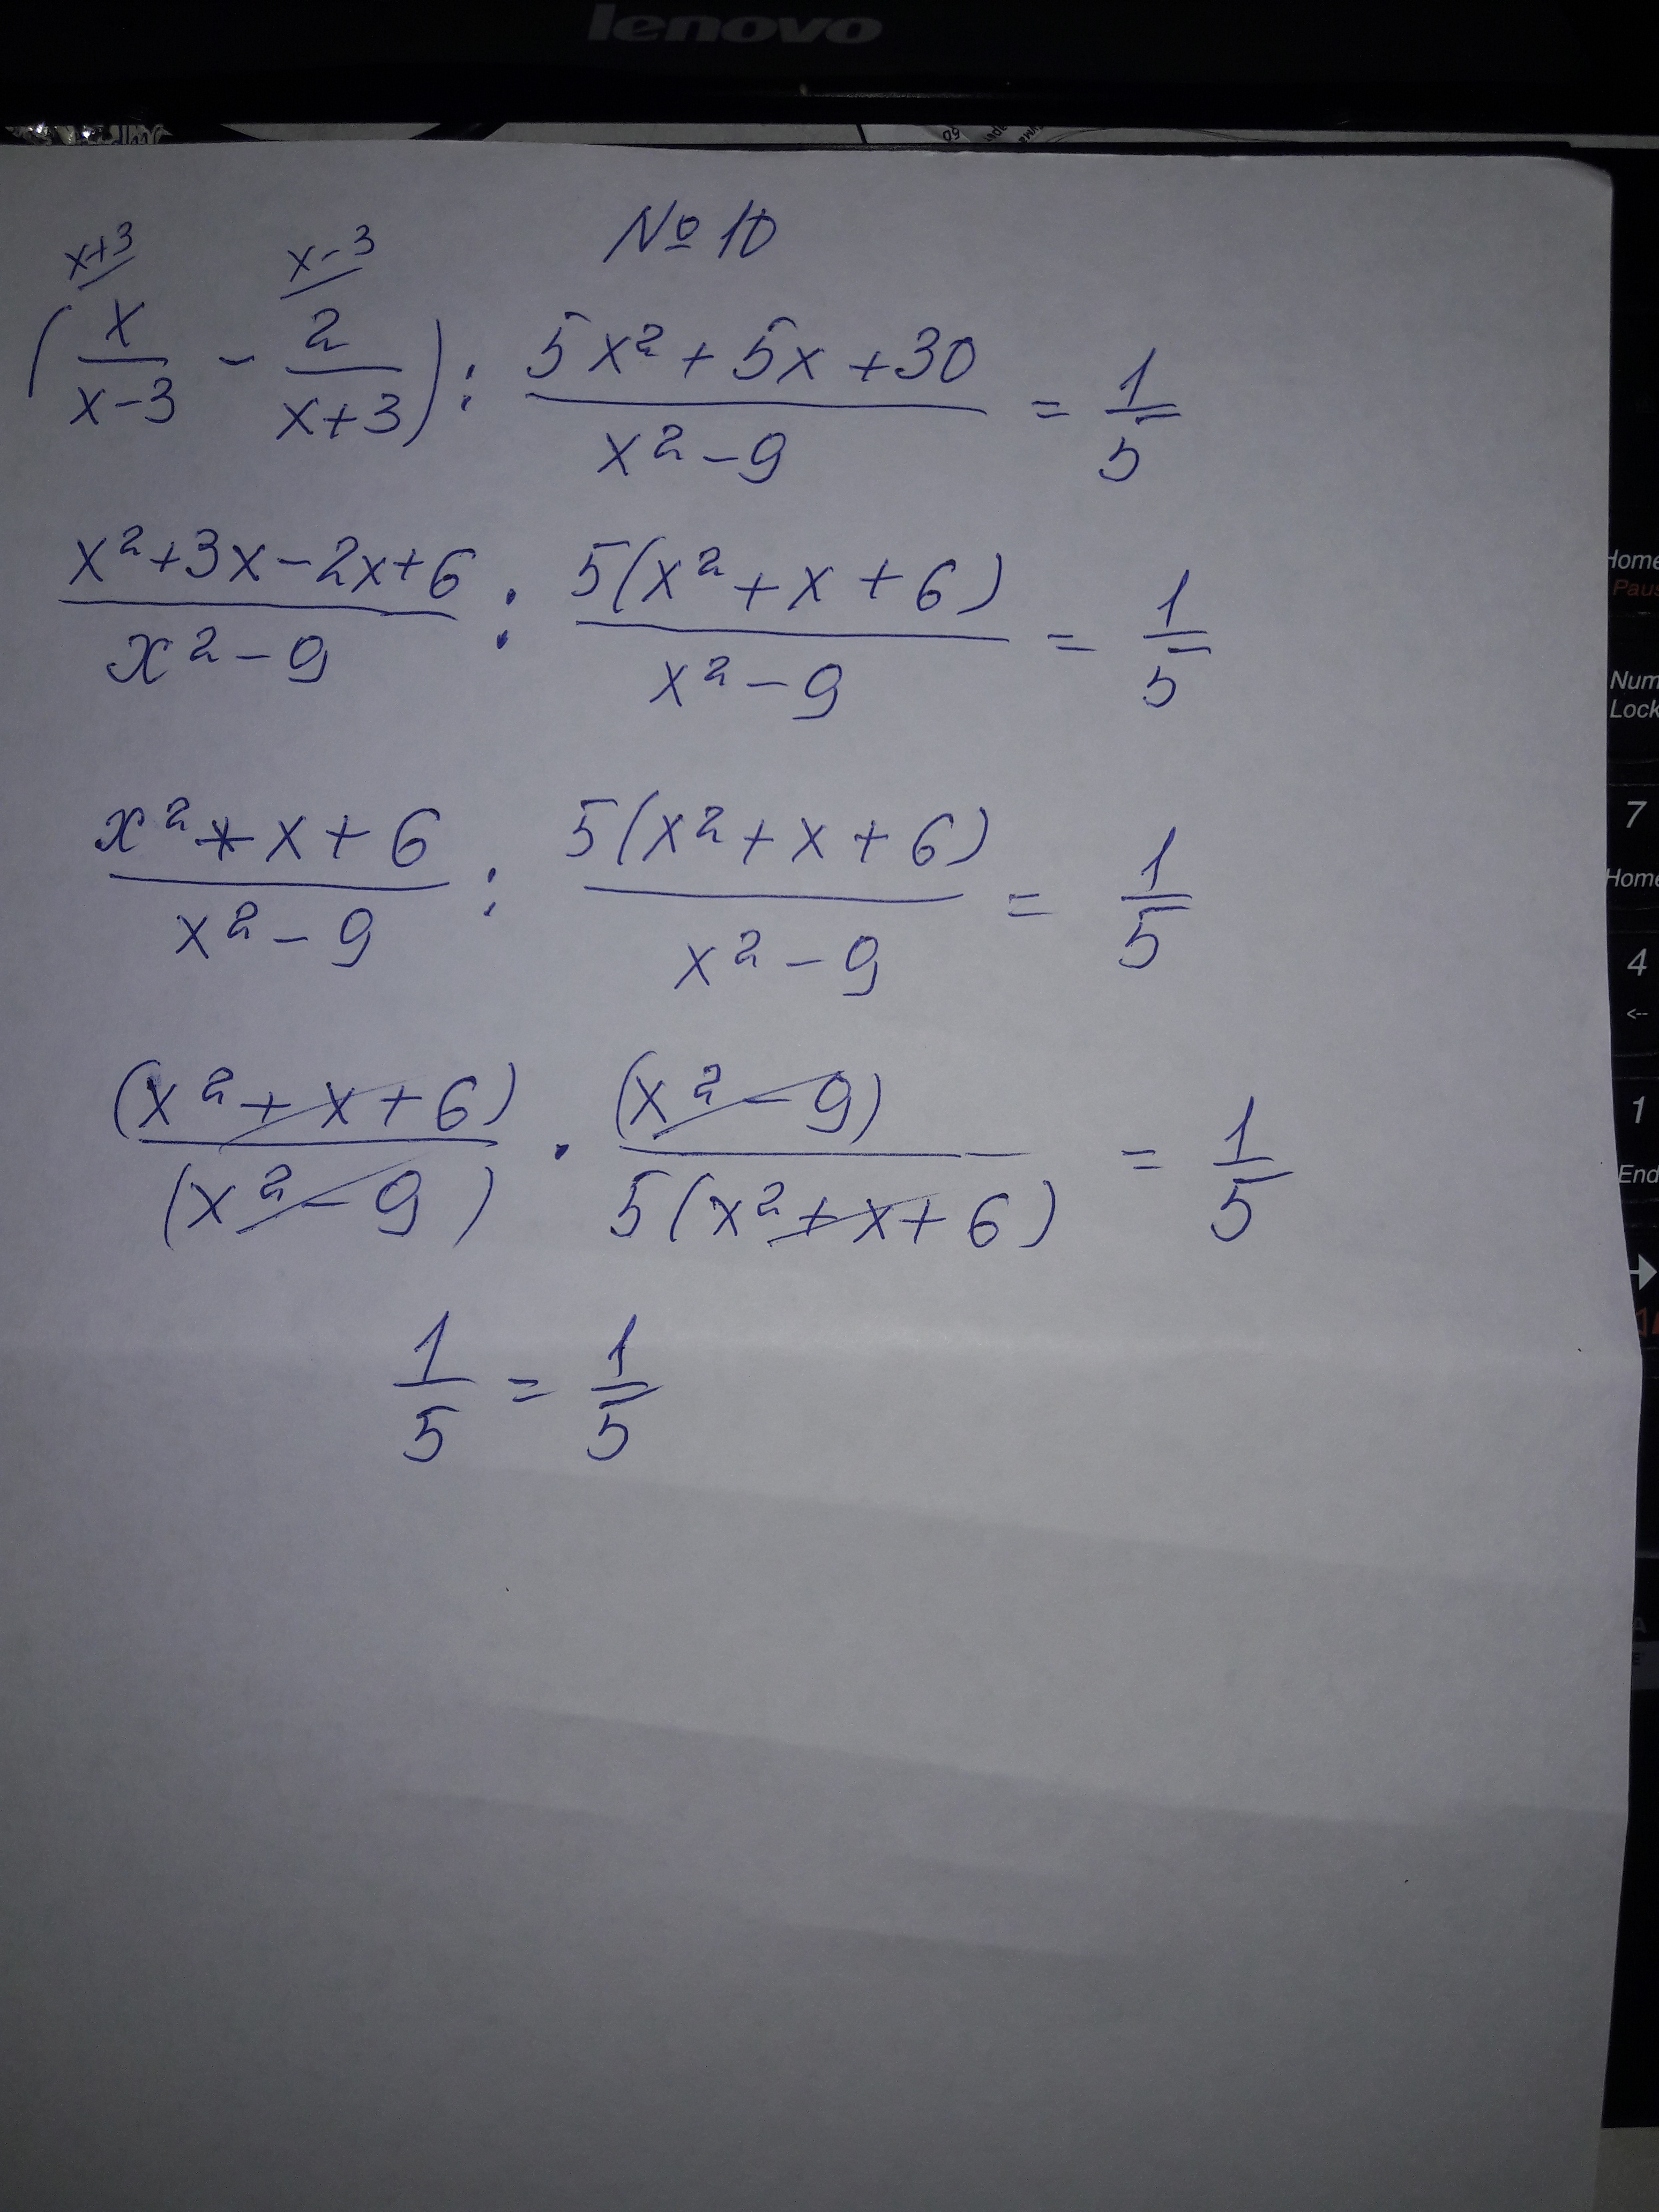 lenovo
№ 10
x+3 x-3
(x/(x-3) - 2/(x+3)) : (5x²+5x+30)/(x²-9) = 1/5
(x²+3x-2x+6)/(x²-9) : 5(x²+x+6)/(x²-9) = 1/5
(x²+x+6)/(x²-9) : 5(x²+x+6)/(x²-9) = 1/5
(x²+x+6)/(x²-9) · (x²-9)/5(x²+x+6) = 1/5
1/5 = 1/5
Home
Num
Lock
7
Home
4
<--
1
End